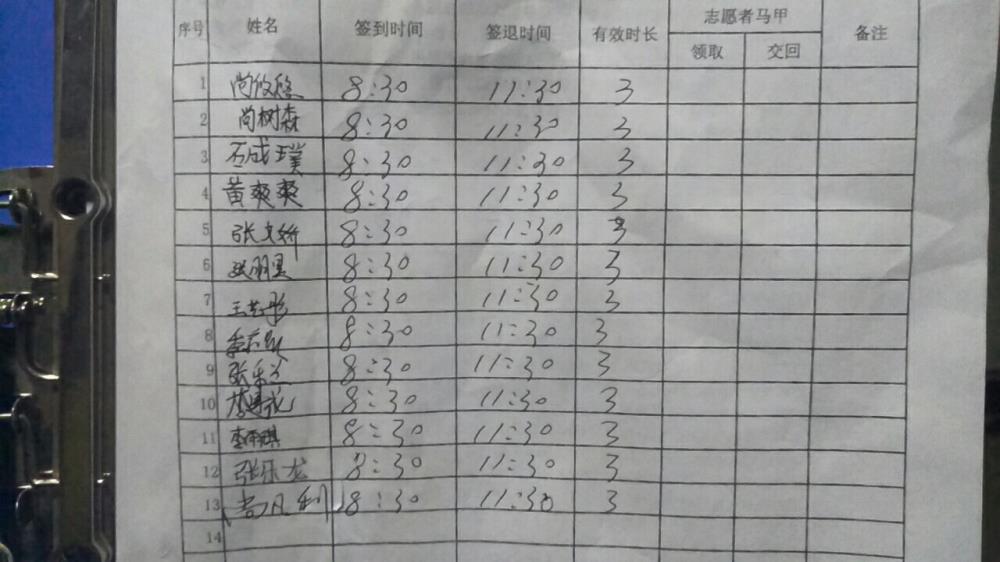 序号 姓名 签到时间 签退时间 有效时长 志愿者马甲 备注
领取 交回
1 尚悠悠 8:30 11:30 3
2 尚树森 8:30 11:30 3
3 成璞 8:30 11:30 3
4 黄爽爽 8:30 11:30 3
5 张文娇 8:30 11:30 3
6 8:30 11:30 3
7 王艺彤 8:30 11:30 3
8 8:30 11:30 3
9 张 8:30 11:30 3
10 8:30 11:30 3
11 李雨祺 8:30 11:30 3
12 张乐龙 8:30 11:30 3
13 尚凡利 8:30 11:30 3
14